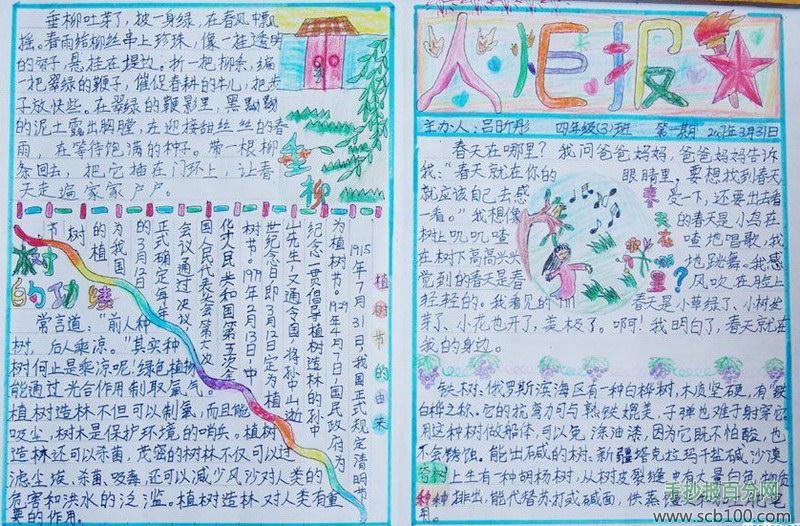 垂柳吐芽了,披一身绿,在春风中飘
摇。春雨给柳丝串上珍珠,像一挂透明
的帘子,悬挂在堤边。折一把柳条,编
一把翠绿的鞭子,催促春耕的牛儿,把步
子放快些。在翠绿的鞭影里,黑黝黝
的泥土露出胸膛,在迎接甜丝丝的春
雨,在等待饱满的种子。带一根柳
条回去,把它插在门环上,让春
天走遍家家户户。
垂柳
植树节的由来
1915年7月31日,我国正式规定清明节
为植树节。1929年4月7日,国民政府为
纪念一贯倡导植树造林的孙中
山先生,又通令全国,将孙中山逝
世纪念日即3月12日定为植
树节。1979年2月13日,中
华人民共和国第五
国人民代表大会第六次
会议通过决议,
正式确定每年
的3月12日
为我国
的植
树
节
树
的功
常言道:“前人种
树,后人乘凉。”其实种
树何止是乘凉呢!绿色植物
能通过光合作用制取氧气。
植树造林不但可以制氧,而且能
吸尘,树木是保护环境的哨兵。植树
造林还可以杀菌,茂密的树林不仅可以过
滤尘埃、杀菌、吸毒,还可以减少风沙对人类的
危害和洪水的泛滥。植树造林对人类有重
要的作用。
火炬报
主办人:吕昕彤 四年级(3)班 第一期 3月31日
春天在哪里?
春天在哪里?我问爸爸妈妈,爸爸妈妈告诉
我:“春天就在你的眼睛里,要想找到春天
就应该自己去感受一下,还要出去看
一看。”我想像的春天是小鸟在
树上叽叽喳喳地唱歌,我
在树下高高兴兴地跳舞。我感
觉到的春天是春风吹在脸上
轻轻的。我看见的春天是小草绿了、小树发
芽了、小花也开了,美极了。啊!我明白了,春天就在
我的身边。
奇树种种
铁树:俄罗斯滨海区有一种白桦树,木质坚硬,有“铁
白桦之称,它的抗弯力可与熟铁媲美,子弹也难于射穿它
用这种树做船体,可以免涂油漆,因为它既不怕酸,也
不会锈蚀。能出碱的树:新疆塔克拉玛干盐碱沙漠
上生有一种胡杨树,从树皮裂缝中有大量白色物质
排出,能代替苏打或碱面,供蒸馒
用。
手抄报百分网
www.scb100.com